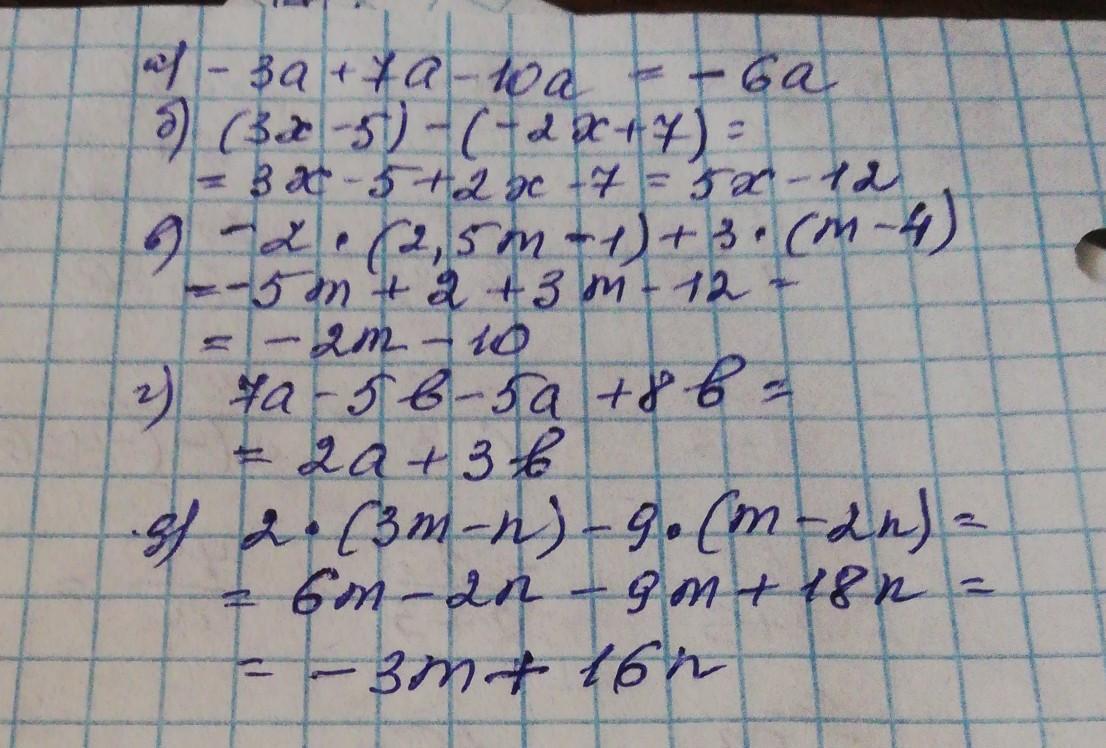 а) - 3a + 7a - 10a = - 6a
б) (3x - 5) - (-2x + 7) =
= 3x - 5 + 2x - 7 = 5x - 12
в) - 2 · (2,5m - 1) + 3 · (m - 4)
= -5m + 2 + 3m - 12 =
= - 2m - 10
г) 7a - 5b - 5a + 8b =
= 2a + 3b
д) 2 · (3m - n) - 9 · (m - 2n) =
= 6m - 2n - 9m + 18n =
= - 3m + 16n